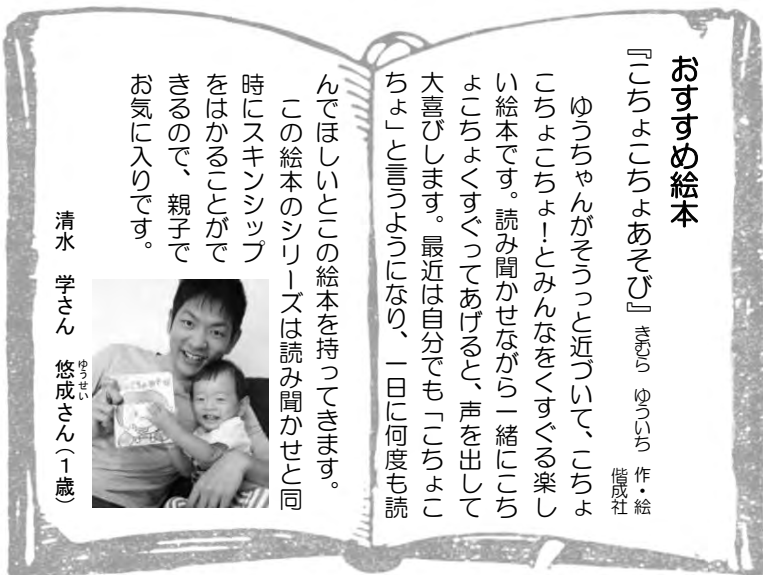 おすすめ絵本
『こちょこちょあそび』 きむら ゆういち 作・絵
偕成社
ゆうちゃんがそうっと近づいて、こちょ
こちょこちょ！とみんなをくすぐる楽し
い絵本です。読み聞かせながら一緒にこち
ょこちょくすぐってあげると、声を出して
大喜びします。最近は自分でも「こちょこ
ちょ」と言うようになり、一日に何度も読
んでほしいとこの絵本を持ってきます。
この絵本のシリーズは読み聞かせと同
時にスキンシップ
をはかることがで
きるので、親子で
お気に入りです。
清水 学さん 悠成さん（1歳）
ゆうせい